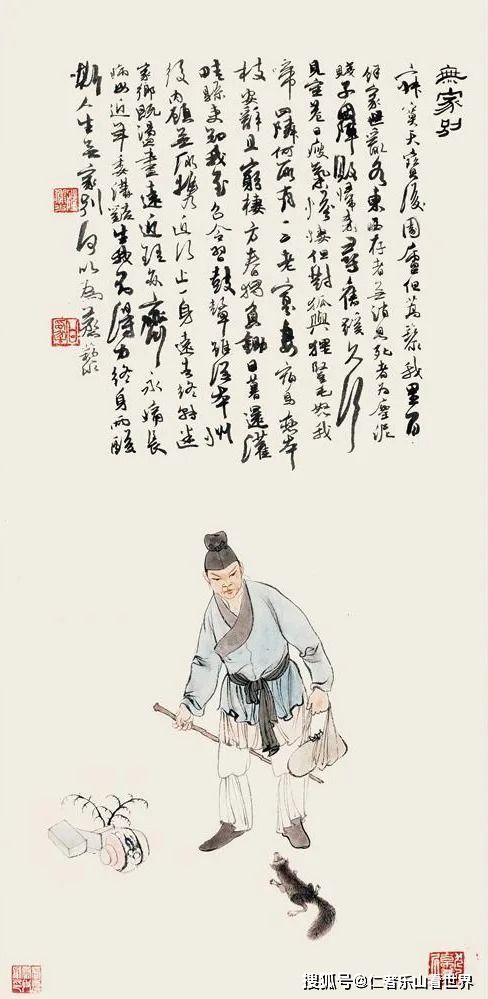 無家别
寂寞天寶後園廬但蒿藜我里百
餘家世亂各東西存者無消息死者为塵泥
賤子因陣敗歸來尋舊蹊久行
見空巷日瘦氣惨悽但對狐與狸竪毛怒我
啼四隣何所有一二老寡妻宿鳥戀本
枝安辭且窮棲方春獨負鋤日暮還灌
畦縣吏知我至召令習鼓鞞雖從本州
役内顧無所攜近行止一身遠去終轉迷
家鄉既盪盡遠近理亦齊永痛長
病母近年委溝谿生我不得力終身兩酸
嘶人生無家别何以為蒸藜
搜狐号@仁者乐山看世界